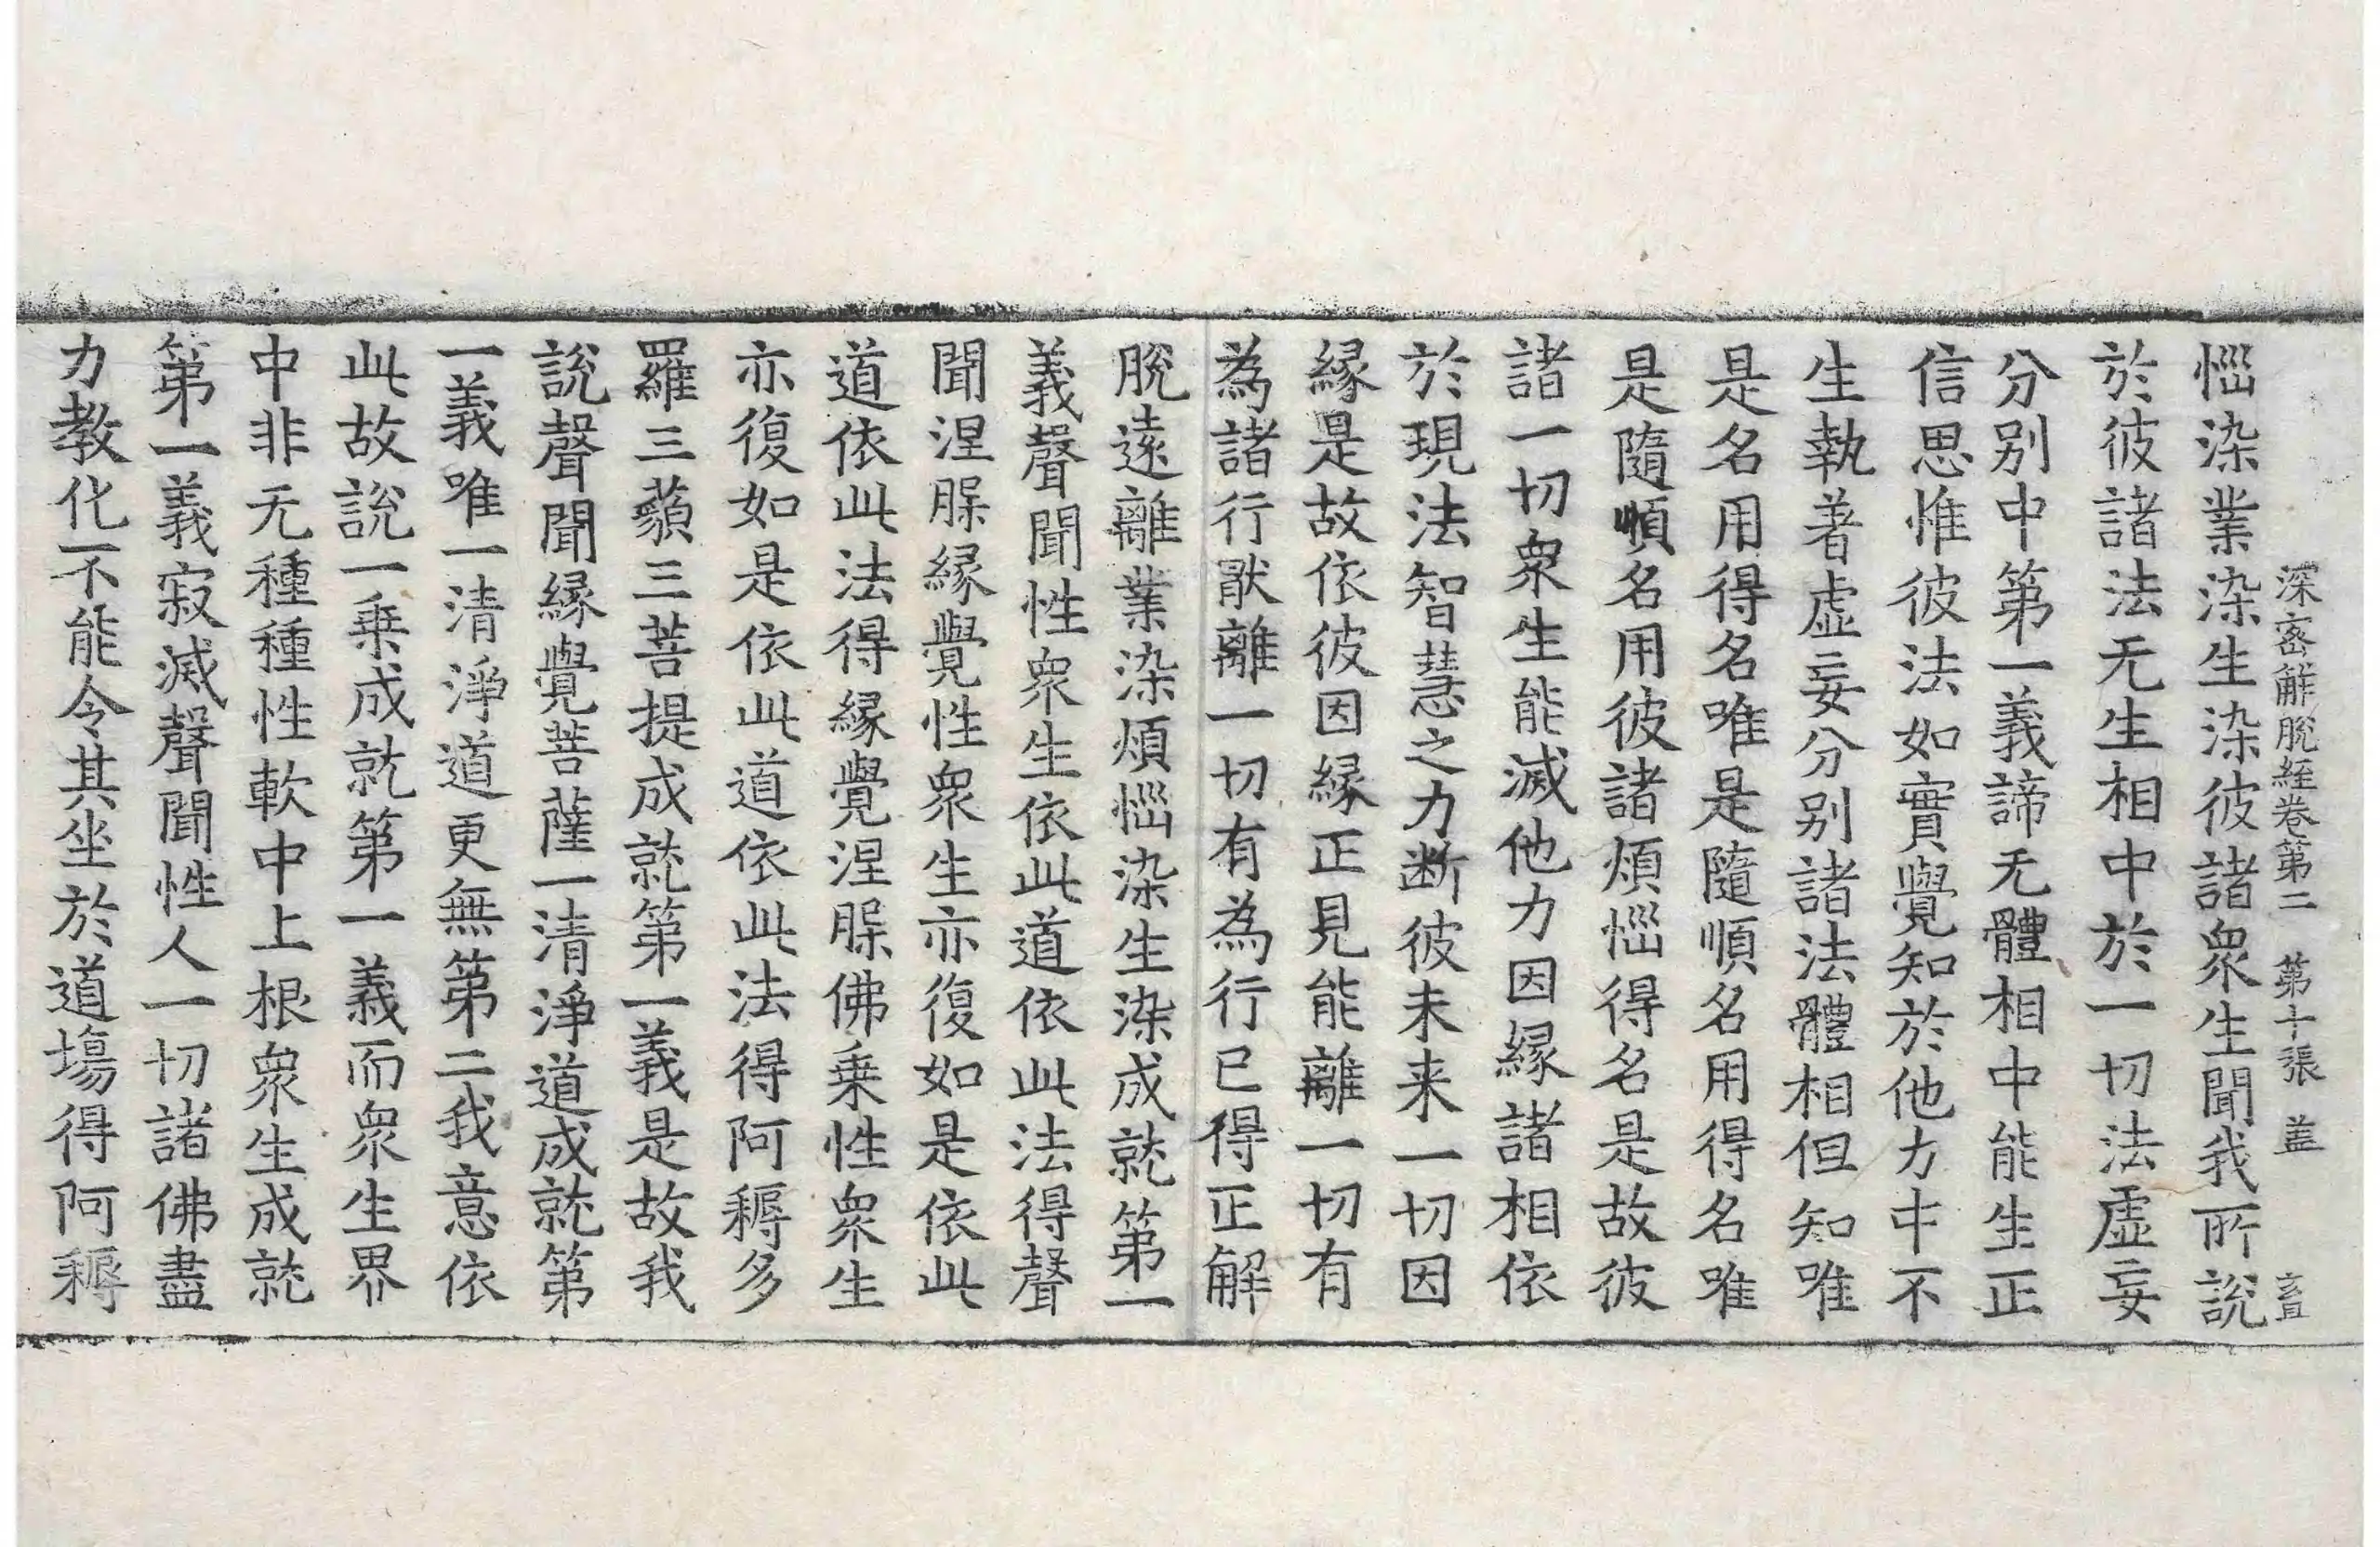 深密解脫經卷第二　第十張　盖　玄
惱染業染生染彼諸衆生聞我所說
於彼諸法无生相中於一切法虛妄
分别中第一義諦无體相中能生正
信思惟彼法如實覺知於他力中不
生執著虛妄分别諸法體相但知唯
是名用得名唯是隨順名用得名唯
是隨順名用彼諸煩惱得名是故彼
諸一切衆生能滅他力因緣諸相依
於現法智慧之力断彼未来一切因
緣是故依彼因緣正見能離一切有
為諸行猒離一切有為行已得正解
脫遠離業染煩惱染生染成就第一
義聲聞性衆生依此道依此法得聲
聞涅槃緣覺性衆生亦復如是依此
道依此法得緣覺涅槃佛乗性衆生
亦復如是依此道依此法得阿耨多
羅三藐三菩提成就第一義是故我
說聲聞緣覺菩薩一清淨道成就第
一義唯一清淨道更無第二我意依
此故說一乗成就第一義而衆生界
中非无種種性軟中上根衆生成就
第一義寂滅聲聞性人一切諸佛盡
力教化不能令其坐於道場得阿耨